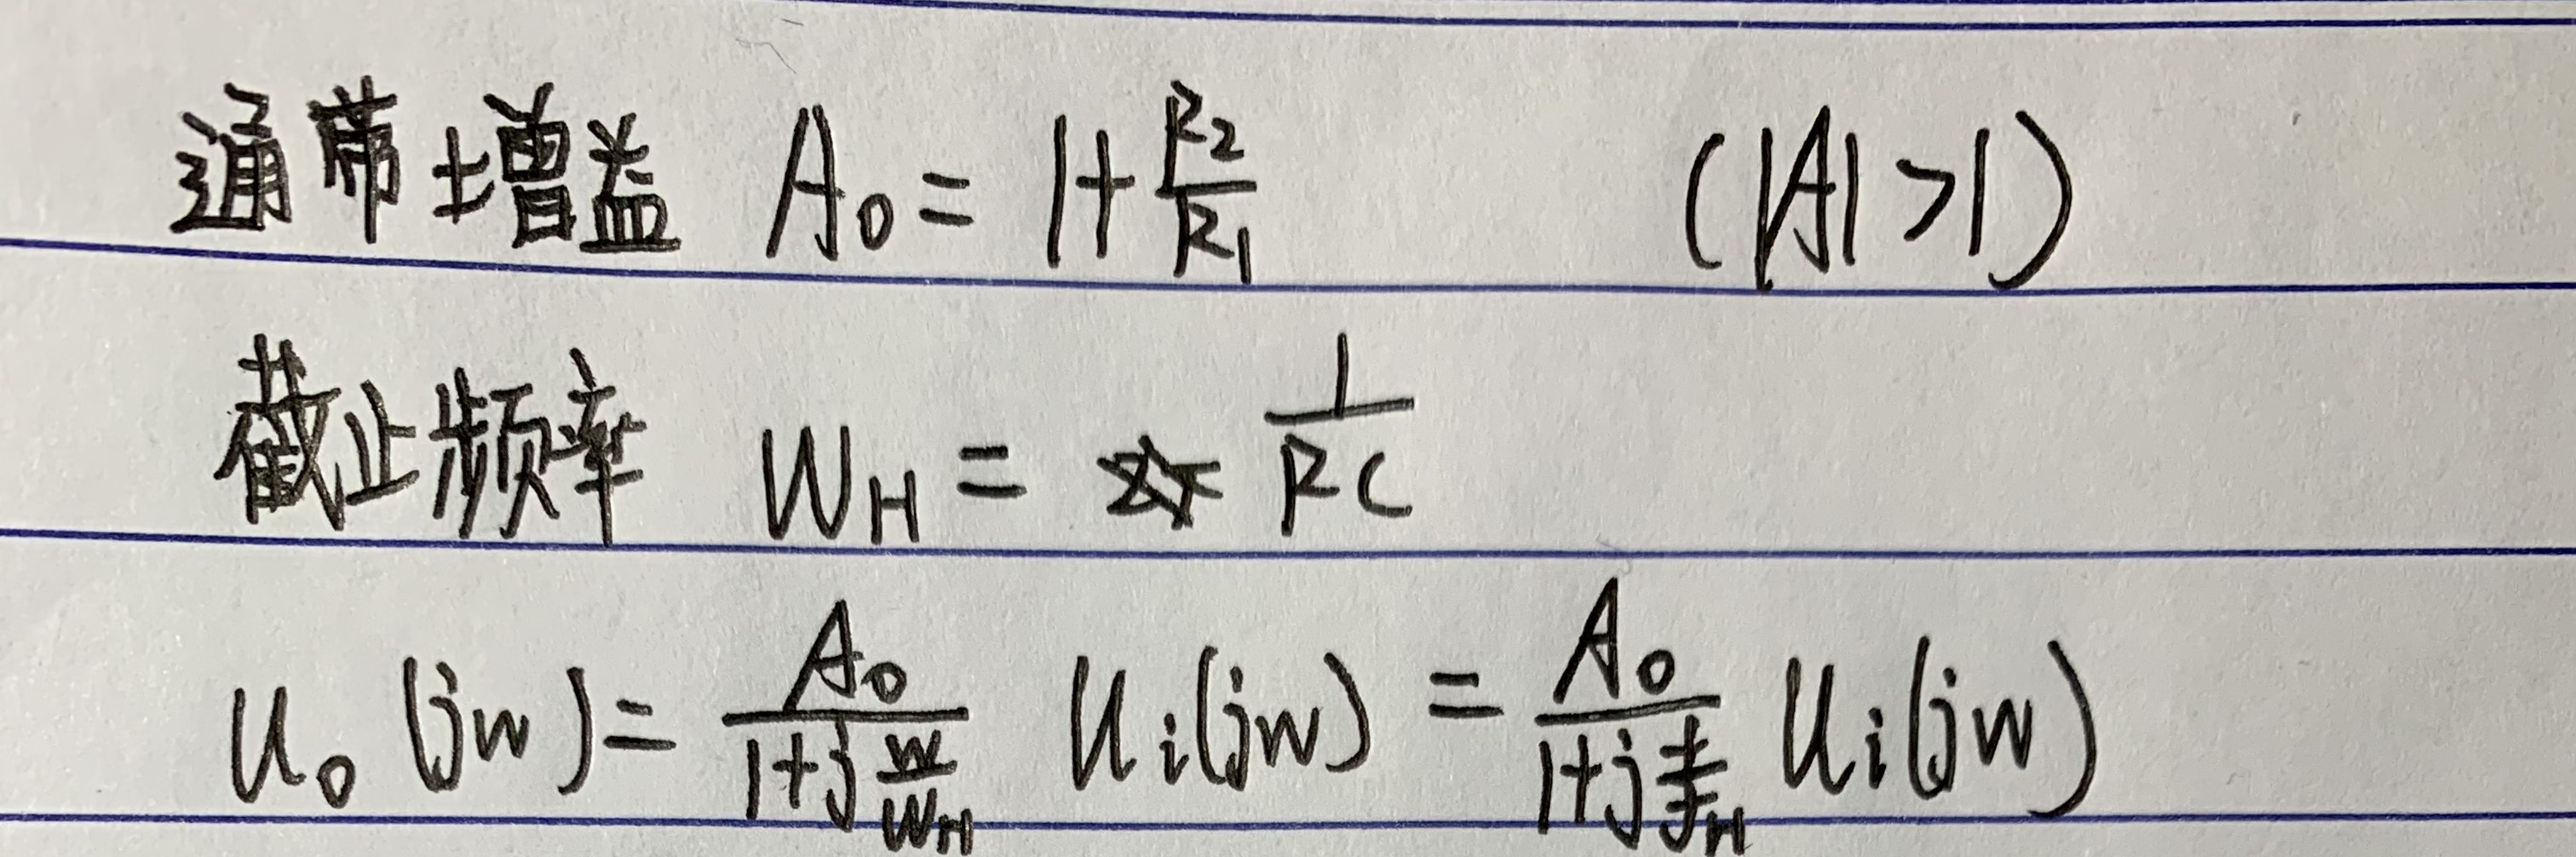 通带增益 A₀ = 1+R₂/R₁ (|A|>1)
截止频率 W_H = 1/RC
U₀(jw) = A₀/(1+j w/w_H) Uᵢ(jw) = A₀/(1+j f/f_H) Uᵢ(jw)